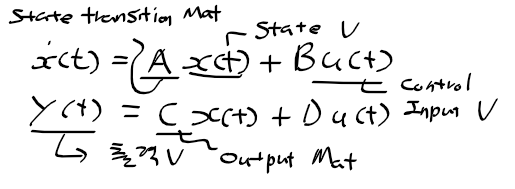 State transition Mat
State V
ẋ(t) = A x(t) + B u(t)
Control
Y(t) = C x(t) + D u(t) Input V
출력 V Output Mat